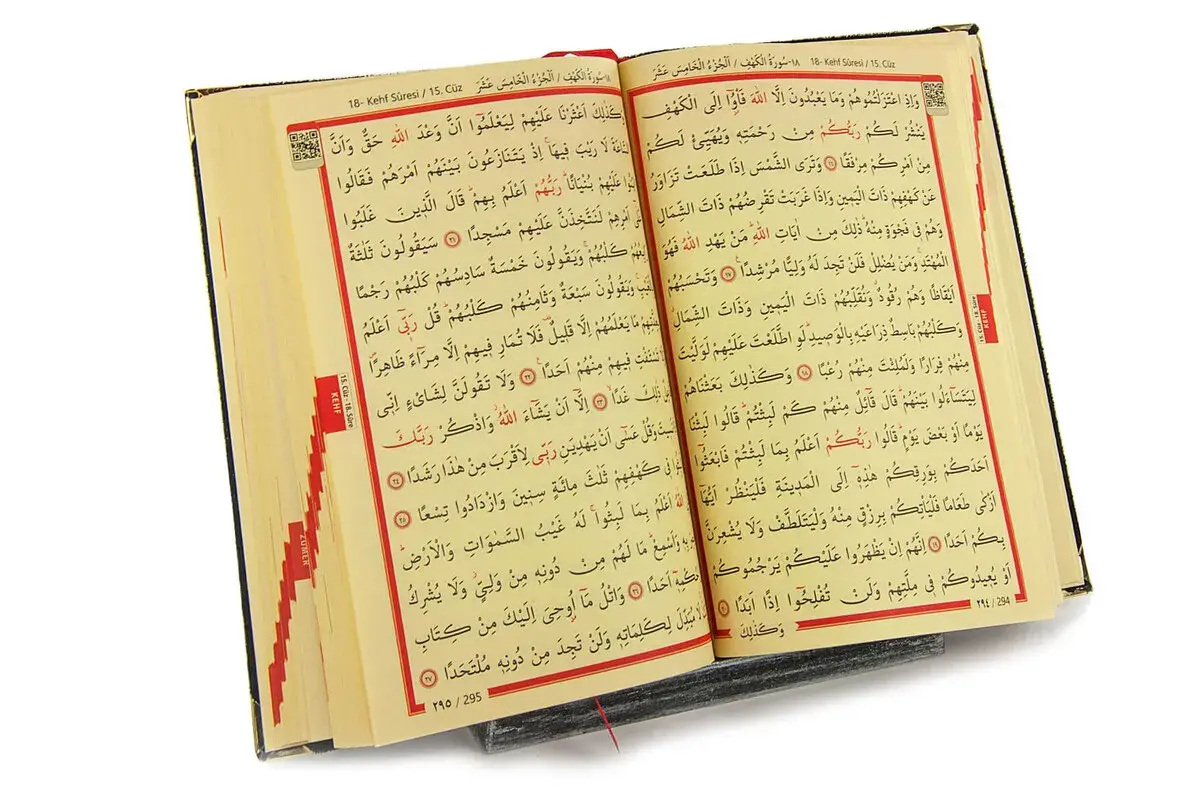 ١٨-سُورَةُ الْكَهْفِ / اَلْجُزْءُ الْخَامِسَ عَشَرَ 18- Kehf Sûresi / 15. Cüz
وَاِذِ اعْتَزَلْتُمُوهُمْ وَمَا يَعْبُدُونَ اِلَّا اللّٰهَ فَأْوُٓ۫ا اِلَى الْكَهْفِ
يَنْشُرْ لَكُمْ رَبُّكُمْ مِنْ رَحْمَتِه۪ وَيُهَيِّئْ لَكُمْ
مِنْ اَمْرِكُمْ مِرْفَقًا ﴿١٦﴾ وَتَرَى الشَّمْسَ اِذَا طَلَعَتْ تَزَاوَرُ
عَنْ كَهْفِهِمْ ذَاتَ الْيَم۪ينِ وَاِذَا غَرَبَتْ تَقْرِضُهُمْ ذَاتَ الشِّمَالِ
وَهُمْ ف۪ي فَجْوَةٍ مِنْهُۜ ذٰلِكَ مِنْ اٰيَاتِ اللّٰهِۜ مَنْ يَهْدِ اللّٰهُ فَهُوَ
الْمُهْتَدِۚ وَمَنْ يُضْلِلْ فَلَنْ تَجِدَ لَهُ وَلِيًّا مُرْشِدًا۟ ﴿١٧﴾ وَتَحْسَبُهُمْ
اَيْقَاظًا وَهُمْ رُقُودٌۗ وَنُقَلِّبُهُمْ ذَاتَ الْيَم۪ينِ وَذَاتَ الشِّمَالِۗ
وَكَلْبُهُمْ بَاسِطٌ ذِرَاعَيْهِ بِالْوَص۪يدِۜ لَوِ اطَّلَعْتَ عَلَيْهِمْ لَوَلَّيْتَ
مِنْهُمْ فِرَارًا وَلَمُلِئْتَ مِنْهُمْ رُعْبًا ﴿١٨﴾ وَكَذٰلِكَ بَعَثْنَاهُمْ
لِيَتَسَٓاءَلُوا بَيْنَهُمْۜ قَالَ قَٓائِلٌ مِنْهُمْ كَمْ لَبِثْتُمْۜ قَالُوا لَبِثْنَا
يَوْمًا اَوْ بَعْضَ يَوْمٍۜ قَالُوا رَبُّكُمْ اَعْلَمُ بِمَا لَبِثْتُمْ فَابْعَثُٓوا
اَحَدَكُمْ بِوَرِقِكُمْ هٰذِه۪ٓ اِلَى الْمَد۪ينَةِ فَلْيَنْظُرْ اَيُّهَٓا
اَزْكٰى طَعَامًا فَلْيَأْتِكُمْ بِرِزْقٍ مِنْهُ وَلْيَتَلَطَّفْ وَلَا يُشْعِرَنَّ
بِكُمْ اَحَدًا ﴿١٩﴾ اِنَّهُمْ اِنْ يَظْهَرُوا عَلَيْكُمْ يَرْجُمُوكُمْ
اَوْ يُع۪يدُوكُمْ ف۪ي مِلَّتِهِمْ وَلَنْ تُفْلِحُٓوا اِذًا اَبَدًا
وَكَذٰلِكَ
٢٩٤ / 294
15. Cüz- 18. Sûre
KEHF
١٨-سُورَةُ الْكَهْفِ / اَلْجُزْءُ الْخَامِسَ عَشَرَ 18- Kehf Sûresi / 15. Cüz
وَكَذٰلِكَ اَعْثَرْنَا عَلَيْهِمْ لِيَعْلَمُٓوا اَنَّ وَعْدَ اللّٰهِ حَقٌّ وَاَنَّ
لَا رَيْبَ ف۪يهَاۚ اِذْ يَتَنَازَعُونَ بَيْنَهُمْ اَمْرَهُمْ فَقَالُوا
عَلَيْهِمْ بُنْيَانًاۜ رَبُّهُمْ اَعْلَمُ بِهِمْۜ قَالَ الَّذ۪ينَ غَلَبُوا
اَمْرِهِمْ لَنَتَّخِذَنَّ عَلَيْهِمْ مَسْجِدًا ﴿٢١﴾ سَيَقُولُونَ ثَلٰثَةٌ
كَلْبُهُمْۚ وَيَقُولُونَ خَمْسَةٌ سَادِسُهُمْ كَلْبُهُمْ رَجْمًا
وَيَقُولُونَ سَبْعَةٌ وَثَامِنُهُمْ كَلْبُهُمْۜ قُلْ رَبّ۪ٓي اَعْلَمُ
مَا يَعْلَمُهُمْ اِلَّا قَل۪يلٌ۠ فَلَا تُمَارِ ف۪يهِمْ اِلَّا مِرَٓاءً ظَاهِرًاۖ
ف۪يهِمْ مِنْهُمْ اَحَدًا۟ ﴿٢٢﴾ وَلَا تَقُولَنَّ لِشَا۬يْءٍ اِنّ۪ي
ذٰلِكَ غَدًاۙ ﴿٢٣﴾ اِلَّٓا اَنْ يَشَٓاءَ اللّٰهُۘ وَاذْكُرْ رَبَّكَ
وَقُلْ عَسٰٓى اَنْ يَهْدِيَنِ رَبّ۪ي لِاَقْرَبَ مِنْ هٰذَا رَشَدًا ﴿٢٤﴾
ف۪ي كَهْفِهِمْ ثَلٰثَ مِائَةٍ سِن۪ينَ وَازْدَادُوا تِسْعًا ﴿٢٥﴾
اللّٰهُ اَعْلَمُ بِمَا لَبِثُواۚ لَهُ غَيْبُ السَّمٰوَاتِ وَالْاَرْضِۜ
بِه۪ وَاَسْمِعْۜ مَا لَهُمْ مِنْ دُونِه۪ مِنْ وَلِيٍّۘ وَلَا يُشْرِكُ
حُكْمِه۪ٓ اَحَدًا ﴿٢٦﴾ وَاتْلُ مَٓا اُو۫حِيَ اِلَيْكَ مِنْ كِتَابِ
مُبَدِّلَ لِكَلِمَاتِه۪ۚ وَلَنْ تَجِدَ مِنْ دُونِه۪ مُلْتَحَدًا ﴿٢٧﴾
٢٩٥ / 295
15. Cüz- 18. Sûre
KEHF
ZÜMER